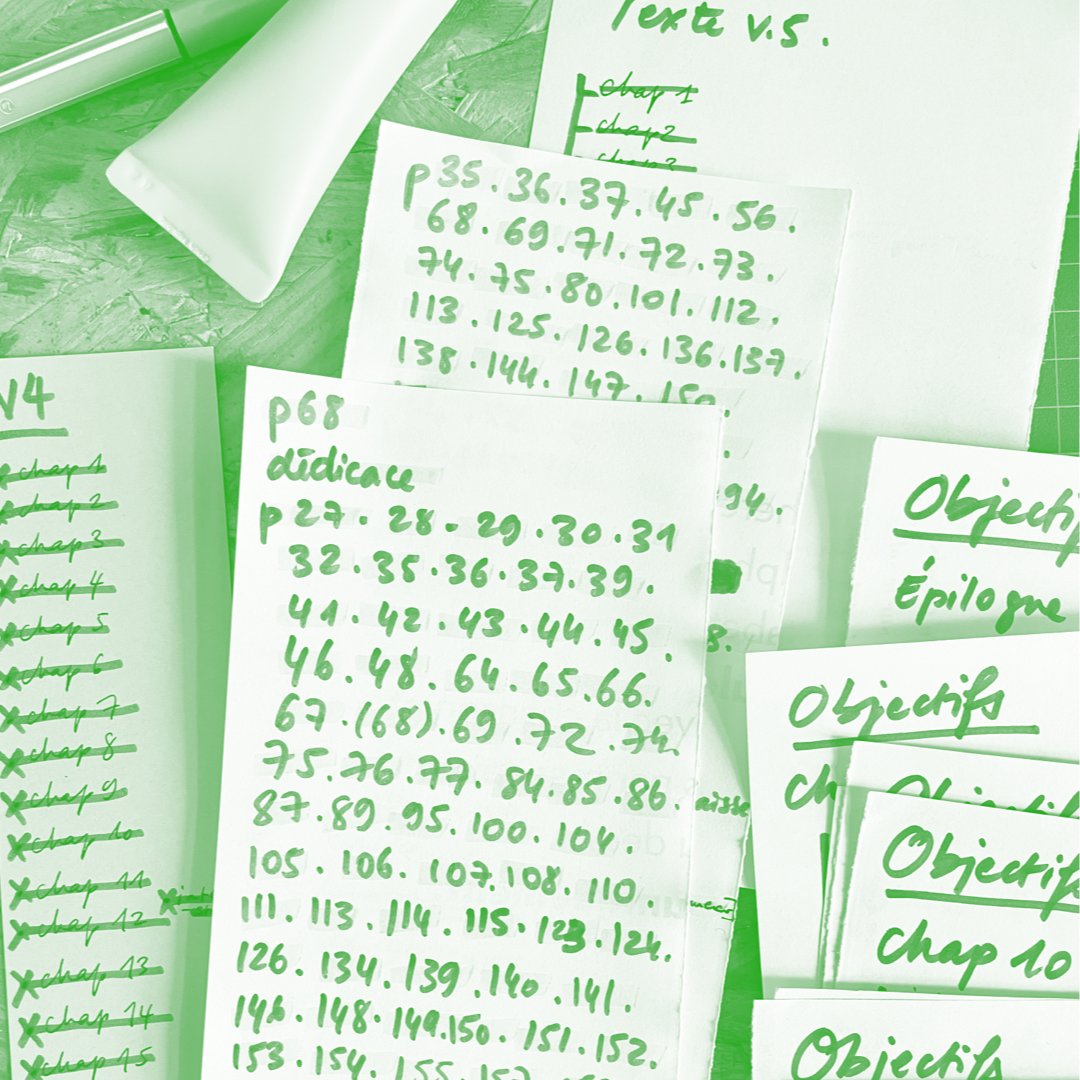 Texte v.5.
chap 1
chap 2
chap 3
p 35. 36. 37. 45. 56.
68. 69. 71. 72. 73.
74. 75. 80. 101. 112.
113. 125. 126. 136. 137.
138. 144. 147. 150.
94.
8.
aisse
merci]
V4
x chap 1
x chap 2
x chap 3
x chap 4
x chap 5
x chap 6
x chap 7
x chap 8
x chap 9
x chap 10
x chap 11
x chap 12
x chap 13
x chap 14
x chap 15
p68
dédicace
p 27. 28. 29. 30. 31
32. 35. 36. 37. 39.
41. 42. 43. 44. 45.
46. 48. 64. 65. 66.
67. (68). 69. 72. 74.
75. 76. 77. 84. 85. 86.
87. 89. 95. 100. 104.
105. 106. 107. 108. 110.
111. 113. 114. 115. 123. 124.
126. 134. 139. 140. 141.
146. 148. 149. 150. 151. 152.
153. 154. 155. 157.
Objectif
Épilogue
Objectifs
ch
Objectifs
Objectifs
chap 10
Objectifs